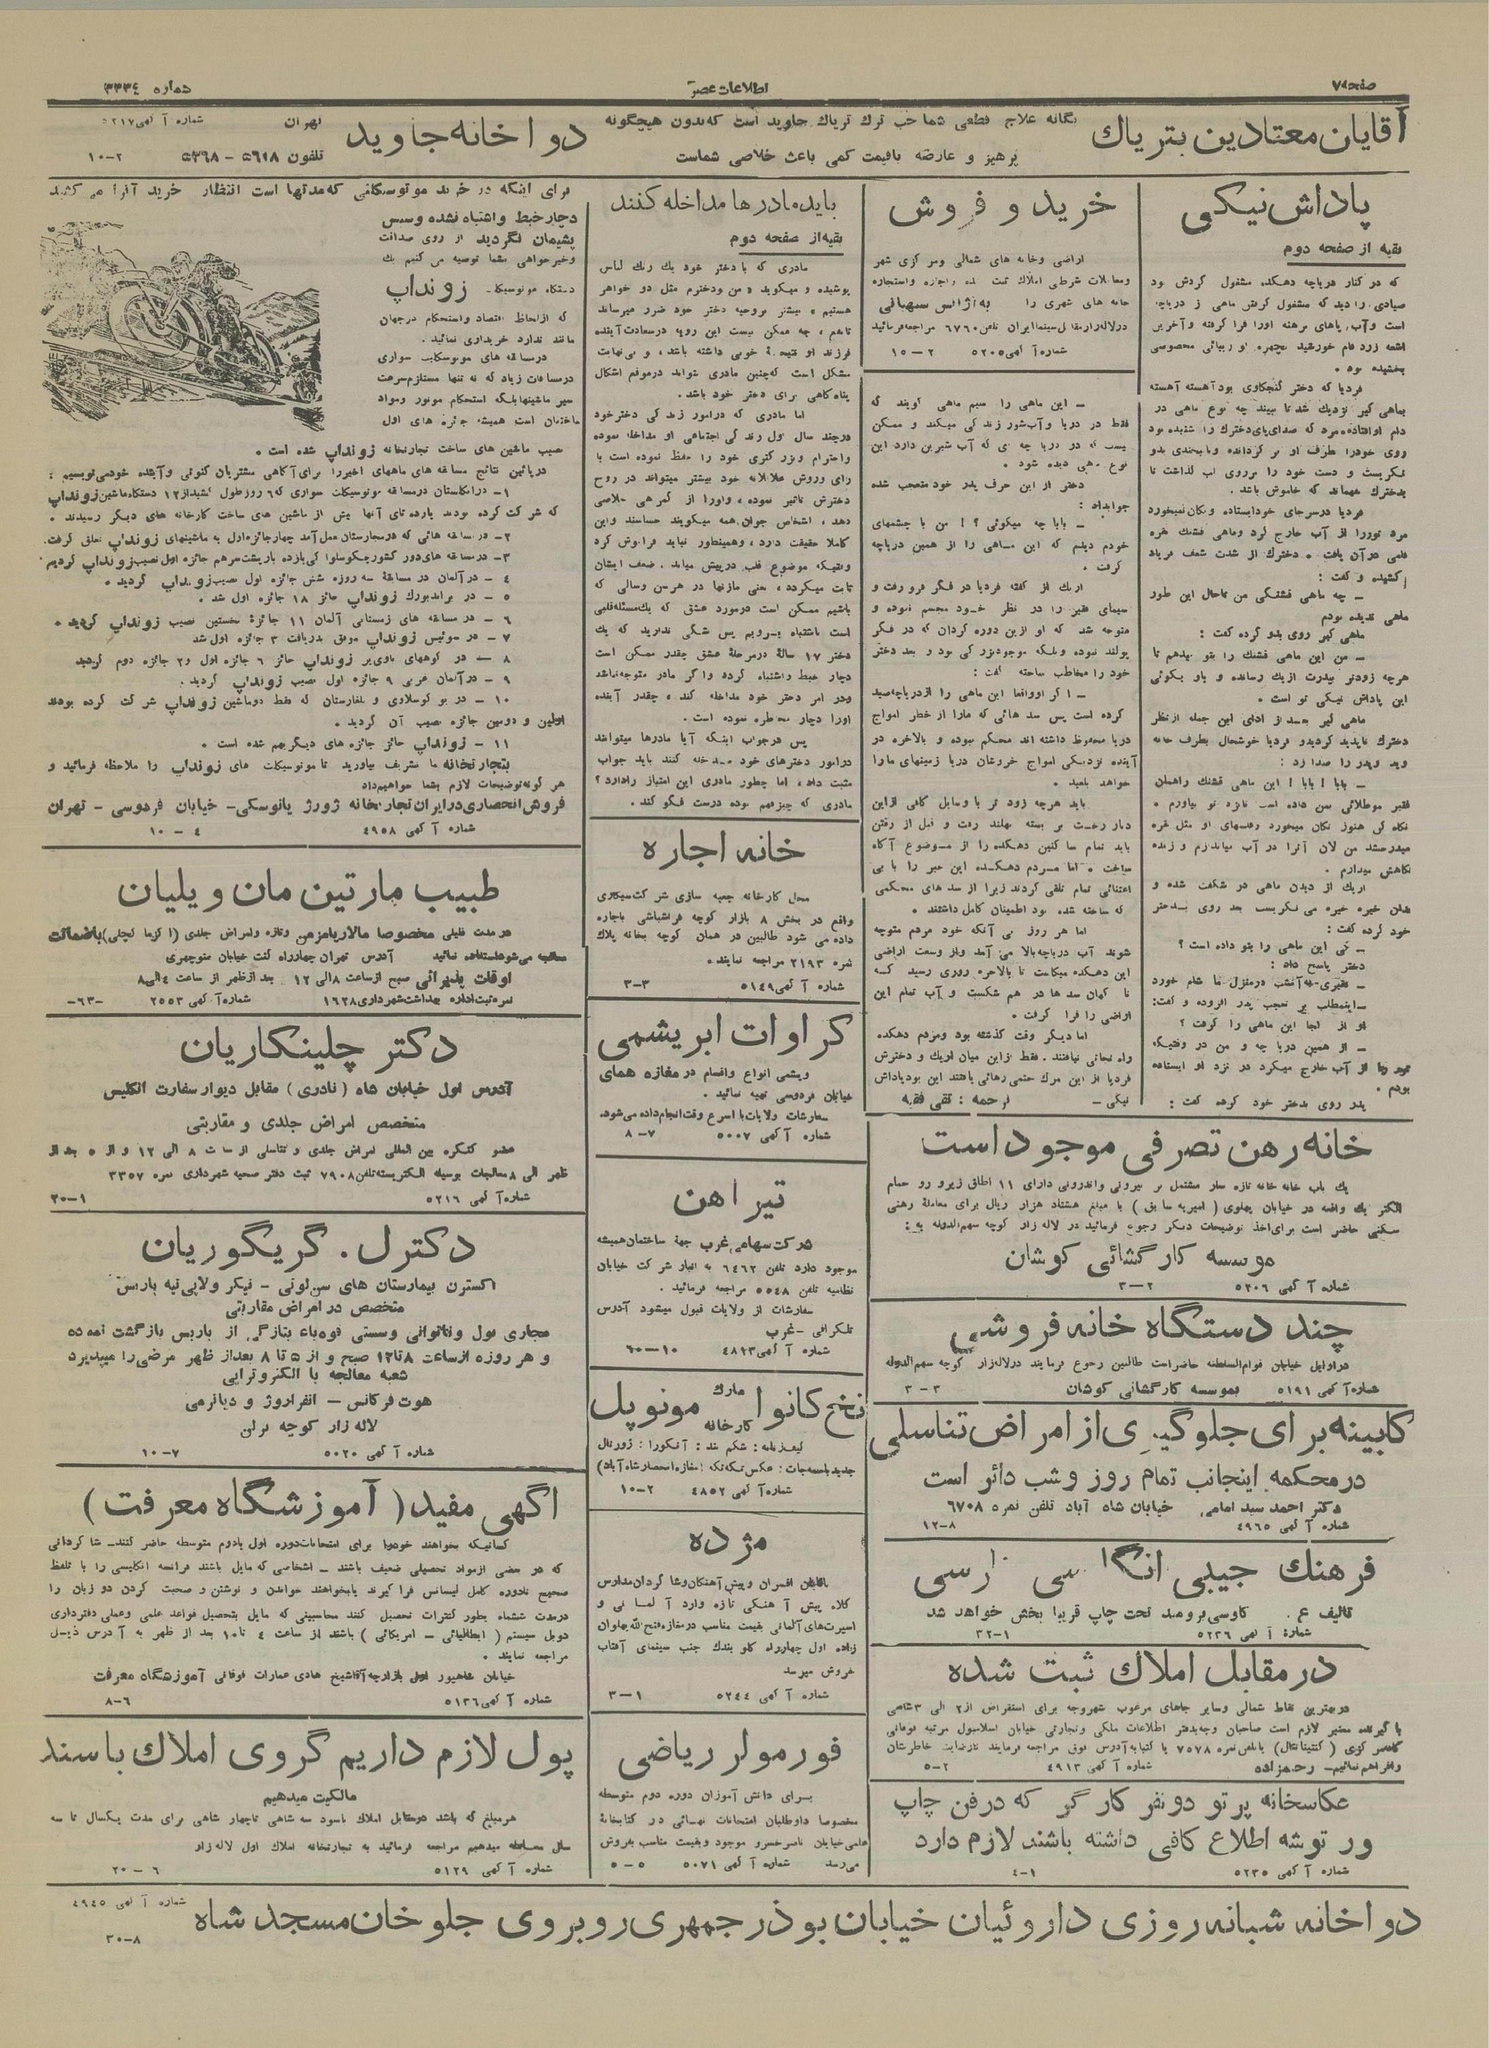 صفحه ۷
اطلاعات عصر
شماره ۳۳۳۴
آقایان معتادین بتریاک
یگانه علاج قطعی شما حب ترک تریاک جاوید است که بدون هیچگونه
پرهیز و عارضه باقیمت کمی باعث خلاصی شماست
دواخانه جاوید
تهران
تلفون ۵۶۱۸ – ۵۳۶۸
شماره آگهی ۵۲۱۷
۱۰–۲
پاداش نیکی
بقیه از صفحه دوم
که در کنار دریاچه دهکده مشغول گردش بود
صیادی را دید که مشغول گرفتن ماهی ز دریاچه
است و آب، پاهای برهنه اورا فرا گرفته و آخرین
اشعه زرد فام خورشید بچهره او زیبائی مخصوصی
بخشیده بود.
فردیا که دختر کنجکاوی بود آهسته آهسته
بماهی گیر نزدیک شد تا ببیند چه نوع ماهی در
دام افتاده. مرد که صدای پای دخترک را شنیده بود
روی خود را بطرف او بر گردانده و با لبخندی بدو
نگریست و دست خود را بر روی لب گذاشت تا
بدخترک بفهماند که خاموش باشد.
فردیا در سر جای خود ایستاده و تکان نمیخورد
مرد تور را از آب خارج کرد و ماهی قشنگ نقره
فامی در آن یافت. دخترک از شدت شعف فریاد
کشیده و گفت:
– چه ماهی قشنگی من تا حال این طور
ماهی ندیده بودم
ماهی گیر روی بدو کرده گفت:
– من این ماهی قشنگ را بتو میدهم تا
هرچه زودتر بپدرت اریک رسانده و باو بگوئی
این پاداش نیکی تو است.
ماهی گیر بعد از ادای این جمله از نظر
دخترک ناپدید گردید و فردیا خوشحال بطرف خانه
دوید و پدر را صدا زد:
– بابا! بابا! این ماهی قشنگ را همان
فقیر مو طلائی بمن داده است تا نزد تو بیاورم.
نگاه کن هنوز تکان میخورد و فلسهای او مثل نقره
میدرخشد من الان آنرا در آب میاندازم و زنده
نگاهش میدارم.
اریک از دیدن ماهی در شگفت شده و
بدان خیره خیره می نگریست بعد روی بدختر
خود کرده گفت:
– کی این ماهی را بتو داده است؟
دختر پاسخ داد:
– فقیری که آنشب در منزل ما شام خورد
– اینمطلب بر تعجب پدر افزوده و گفت:
او از کجا این ماهی را گرفت؟
– از همین دریاچه و من در وقتیکه
تور را از آب خارج میکرد در نزد او ایستاده
بودم.
پدر روی بدختر خود کرده گفت:
خرید و فروش
اراضی و خانه های شمالی و مرکزی شهر
و معاملات شرطی املاک ثبت شده و اجاره و استجاره
خانه های شهری را به آژانس سبهانی
در لاله زار مقابل سینما ایران تلفن ۶۷۶۰ مراجعه فرمائید
شماره آگهی ۵۲۰۵
۱۵–۲
– این ماهی را سیم ماهی گویند که
فقط در دریا و آب شور زندگی میکند و ممکن
نیست که در دریاچه ای که آب شیرین دارد این
نوع ماهی دیده شود.
دختر از این حرف پدر خود متعجب شده
جوابداد:
– بابا چه میگوئی؟! من با چشمهای
خودم دیدم که این ماهی را از همین دریاچه
گرفت.
اریک از گفته فردیا در فکر فرو رفت و
سیمای فقیر را در نظر خود مجسم نموده و
متوجه شد که او از بین دوره گردان که در فکر
پولند نبوده و بلکه موجود بزرگی بود و بعد دختر
خود را مخاطب ساخته گفت:
– اگر او واقعا این ماهی را از دریاچه صید
کرده است پس سد هائی که ما را از خطر امواج
دریا محفوظ داشته اند محکم نبوده و بالاخره در
آینده نزدیکی امواج خروشان دریا زمینهای ما را
خواهد بلعید.
باید هرچه زود تر با وسایل کافی از این
دیار رخت بر بسته بهلند رفت و قبل از رفتن
باید تمام ساکنین دهکده را از موضوع آگاه
ساخت. اما مردم دهکده این خبر را با بی
اعتنائی تمام تلقی کردند زیرا از سد های محکمی
که ساخته شده بود اطمینان کامل داشتند.
اما هر روز بی آنکه خود مردم متوجه
شوند آب دریاچه بالا می آمد و از وسعت اراضی
این دهکده میکاست تا بالاخره روزی رسید که
نا گهان سد ها در هم شکست و آب تمام این
اراضی را فرا گرفت.
اما دیگر وقت گذشته بود و مردم دهکده
راه نجاتی نیافتند. فقط از این میان اریک و دخترش
فردیا از این مرگ حتمی رهائی یافتند این بود پاداش
نیکی – ترجمه: تقی فقیه
باید مادرها مداخله کنند
بقیه از صفحه دوم
مادری که با دختر خود یک رنگ لباس
پوشیده و میگوید «من و دخترم مثل دو خواهر
هستیم» بیشتر بروحیه دختر خود ضرر میرساند
تا هم، چه ممکن نیست این رویه در سعادت آینده
فرزند او نتیجهٔ خوبی داشته باشد، و بی نهایت
مشکل است که چنین مادری بتواند در موقع اشکال
پناه گاهی برای دختر خود باشد.
اما مادری که در امور زندگی دختر خود
در چند سال اول زندگی اجتماعی او مداخله نموده
و احترام و بزرگتری خود را حفظ نموده است با
رأی و روش عاقلانه خود بیشتر میتواند در روح
دخترش تأثیر نموده، و اورا از گمرهی خلاصی
دهد، اشخاص جوان همه میگویند حساسند و این
کاملا حقیقت دارد، و همینطور نباید فراموش کرد
وقتیکه موضوع قلب در پیش میاید. ضعف ایشان
ثابت میگردد، حتی مازنها در هر سن و سالی که
باشیم ممکن است در مورد عشق که یک مسئله قلبی
است باشتباه برویم پس شکی ندارید که یک
دختر ۱۷ ساله در مرحله عشق چقدر ممکن است
دچار خبط و اشتباه گردد و اگر مادر متوجه نباشد
و در امر دختر خود مداخله کند، چقدر آینده
اورا دچار مخاطره نموده است.
پس در جواب اینکه آیا مادرها میتوانند
در امور دخترهای خود مداخله کنند باید جواب
مثبت داد، اما چطور مادری این امتیاز را دارد؟
مادری که چیز فهم بوده درست فکر کند.
خانه اجاره
محل کارخانه جعبه سازی شرکت سیگاری
واقع در بخش ۸ بازار کوچه فراشباشی باجاره
داده می شود طالبین در همان کوچه بخانه پلاک
نمره ۲۱۹۳ مراجعه نمایند.
شماره آگهی ۵۱۴۹
۳–۳
کراوات ابریشمی
و پشمی انواع و اقسام در مغازه همای
خیابان فردوسی تهیه نمائید.
سفارشات ولایات با اسرع وقت انجام داده می شود.
شماره آگهی ۵۰۰۷
۸–۷
تیر اهن
شرکت سهامی غرب جهة ساختمان همیشه
موجود دارد تلفن ۶۴۶۲ به انبار شرکت خیابان
نظامیه تلفن ۵۵۴۸ مراجعه فرمائید.
سفارشات از ولایات قبول میشود آدرس
تلگرافی – غرب
شماره آگهی ۴۸۱۳
۶۰–۱۰
نخ کانوا مارک کارخانه مونوپل
شماره آگهی ۴۸۵۲
۱۰–۲
مژده
بآقایان افسران و پیش آهنگان و شاگردان مدارس
کلاه پیش آهنگی تازه وارد آلمانی و
اسپرت های آلمانی بقیمت مناسب در مغازه فتح الله پهلوان
زاده اول چهارراه کلوبندک جنب سینمای آفتاب
بفروش میرسد
شماره آگهی ۵۲۴۴
۳–۱
فورمولر ریاضی
برای دانش آموزان دوره دوم متوسطه
مخصوصا داوطلبان امتحانات نهائی در کتابخانه
علمی خیابان ناصر خسرو موجود و بقیمت مناسب بفروش
می رسد
شماره آگهی ۵۰۷۱
۵–۵
برای اینکه در خرید موتوسیکلتی که مدتها است انتظار خرید آنرا می کشید
دچار خبط و اشتباه نشده و سپس
پشیمان نگردید از روی صداقت
و خیرخواهی بشما توصیه می کنیم یک
دستگاه موتوسیکلت زونداپ
که از لحاظ اقتصاد و استحکام در جهان
مانند ندارد خریداری نمائید.
در مسابقه های موتوسیکلت سواری
در مسافات زیاد که نه تنها مستلزم سرعت
سیر ماشینها بلکه استحکام موتور و مواد
ساختمان است همیشه جائزه های اول
نصیب ماشین های ساخت تجارتخانه زونداپ شده است.
در پائین نتایج مسابقه های ماههای اخیر را برای آگاهی مشتریان کنونی و آینده خود می نویسیم:
۱– در انگلستان در مسابقه موتوسیکلت سواری که ۶ روز طول کشید از ۱۲ دستگاه ماشین زونداپ
که شرکت کرده بودند یازده تای آنها پیش از ماشین های ساخت کارخانه های دیگر رسیدند.
۲– در مسابقه هائی که در مجارستان بعمل آمد چهار جائزه اول به ماشینهای زونداپ تعلق گرفت.
۳– در مسابقه های دور کشور چکوسلواکی یازده بار پشت سر هم جائزه اول نصیب زونداپ گردید.
۴ – در آلمان در مسابقهٔ سه روزه شش جائزه اول نصیب زونداپ گردید.
۵ – در براندبورک زونداپ حائز ۱۸ جائزه اول شد.
۶ – در مسابقه های زمستانی آلمان ۱۱ جائزهٔ نخستین نصیب زونداپ گردید.
۷ – در سوئیس زونداپ موفق بدریافت ۳ جائزه اول شد
۸ – در کوههای باویر زونداپ حائز ۶ جائزه اول و ۲ جائزه دوم گردید
۹ – در آلمان غربی ۹ جائزه اول نصیب زونداپ گردید.
۱۰ – در یوگوسلاوی و بلغارستان که فقط دو ماشین زونداپ شرکت کرده بودند
اولین و دومین جائزه نصیب آن گردید.
۱۱ – زونداپ حائز جائزه های دیگر هم شده است.
بتجارتخانه ما تشریف بیاورید تا موتوسیکلت های زونداپ را ملاحظه فرمائید و
هر گونه توضیحات لازم بشما خواهیم داد
فروش انحصاری در ایران تجارتخانه ژورژ یانوسکی– خیابان فردوسی – تهران
شماره آگهی ۴۹۵۸
۱۰–۴
طبیب مارتین مان ویلیان
در مدت قلیلی مخصوصا مالاریا مزمن و تازه و امراض جلدی (اگزما کچلی) باضمانت
معالجه می شود استفاده نمائید آدرس تهران چهارراه کنت خیابان منوچهری
اوقات پذیرائی صبح از ساعت ۸ الی ۱۲ بعد از ظهر از ساعت ۴ الی ۸
نمره ثبت اداره بهداشت شهرداری ۱۶۲۸
شماره آگهی ۲۵۵۳
–۶۳–
دکتر چلینگاریان
آدرس اول خیابان شاه (نادری) مقابل دیوار سفارت انگلیس
متخصص امراض جلدی و مقاربتی
عضو کنگره بین المللی امراض جلدی و تناسلی از ساعت ۸ الی ۱۲ و از ۵ بعد از
ظهر الی ۸ معالجات بوسیله الکتریسته تلفن ۷۹۰۸ ثبت دفتر صحیه شهرداری نمره ۳۳۵۷
شماره آگهی ۵۲۱۶
۳۰–۱
دکتر ل. گریگوریان
اکسترن بیمارستان های سن لوئی – نیکر ولاپی تیه پاریس
متخصص در امراض مقاربتی
مجاری بول و ناتوانی و سستی قوه باء بتازگی از پاریس بازگشت نموده
و هر روزه از ساعت ۸ تا ۱۲ صبح و از ۵ تا ۸ بعد از ظهر مرضی را میپذیرد
شعبه معالجه با الکتروتراپی
هوت فرکانس – انفراروژ و دیاترمی
لاله زار کوچه برلن
شماره آگهی ۵۰۲۰
۱۰–۷
اگهی مفید (آموزشگاه معرفت)
کسانیکه بخواهند خود را برای امتحانات دوره اول یا دوم متوسطه حاضر کنند – شاگردانی
که در بعضی از مواد تحصیلی ضعیف باشند – اشخاصی که مایل باشند فرانسه انگلیسی را با تلفظ
صحیح تا دوره کامل لیسانس فرا گیرند یا بخواهند خواندن و نوشتن و صحبت کردن دو زبان را
در مدت ششماه بطور کنترات تحصیل کنند محاسبینی که مایل بتحصیل قواعد علمی و عملی دفترداری
دوبل سیستم (ایطالیائی – امریکائی) باشند از ساعت ۴ تا ۱۰ بعد از ظهر به آدرس ذیل
مراجعه نمایند.
خیابان شاهپور اول بازارچه آقا شیخ هادی عمارات فوقانی آموزشگاه معرفت
شماره آگهی ۵۱۳۶
۸–۶
پول لازم داریم گروی املاک باسند
مالکیت میدهیم
هر مبلغ که باشد در مقابل املاک باسود سه شاهی تا چهار شاهی برای مدت یکسال تا سه
سال معامله میدهیم مراجعه فرمائید به تجارتخانه املاک اول لاله زار
شماره آگهی ۵۱۲۹
۲۰–۶
خانه رهن تصرفی موجود است
یک باب خانه خانه تازه ساز مشتمل بر بیرونی و اندرونی دارای ۱۱ اطاق زیر و رو حمام
الکتریک واقعه در خیابان پهلوی (امیریه سابق) با مبلغ هشتاد هزار ریال برای معاملهٔ رهنی
سکنی حاضر است برای اخذ توضیحات دیگر رجوع فرمائید در لاله زار کوچه سهم الدوله به:
موسسه کارگشائی کوشان
شماره آگهی ۵۲۰۶
۳–۲
چند دستگاه خانه فروشی
در اوایل خیابان قوام السلطنه حاضر است طالبین رجوع فرمایند در لاله زار کوچه سهم الدوله
بموسسه کارگشائی کوشان
شماره آگهی ۵۱۹۱
۳–۳
کابینه برای جلوگیری از امراض تناسلی
در محکمه اینجانب تمام روز و شب دائر است
دکتر احمد سید امامی خیابان شاه آباد تلفن نمره ۶۷۰۸
شماره آگهی ۴۹۶۵
۱۲–۸
فرهنگ جیبی انگلیسی فارسی
تالیف ع. کاوسی برومند تحت چاپ قریبا پخش خواهد شد
شماره آگهی ۵۲۳۶
۳۲–۱
در مقابل املاک ثبت شده
در بهترین نقاط شمالی و سایر جاهای مرغوب شهر وجه برای استقراض از ۲ الی ۳ شاهی
با گیرنده معتبر لازم است صاحبان وجه بدفتر اطلاعات ملکی و تجارتی خیابان اسلامبول مرتبه فوقانی
(کنتیننتال) یا تلفن نمره ۷۵۷۸ یا کتبا به آدرس فوق مراجعه فرمایند تا رضایت خاطرشان
را فراهم نمائیم – رحیم زاده
شماره آگهی ۴۹۱۳
۵–۲
عکاسخانه پرتو دونفر کارگر که در فن چاپ
و رتوشه اطلاع کافی داشته باشند لازم دارد
شماره آگهی ۵۲۳۵
۴–۱
دواخانه شبانه روزی داروئیان خیابان بوذرجمهری روبروی جلوخان مسجد شاه
شماره آگهی ۴۹۴۵
۳۰–۸